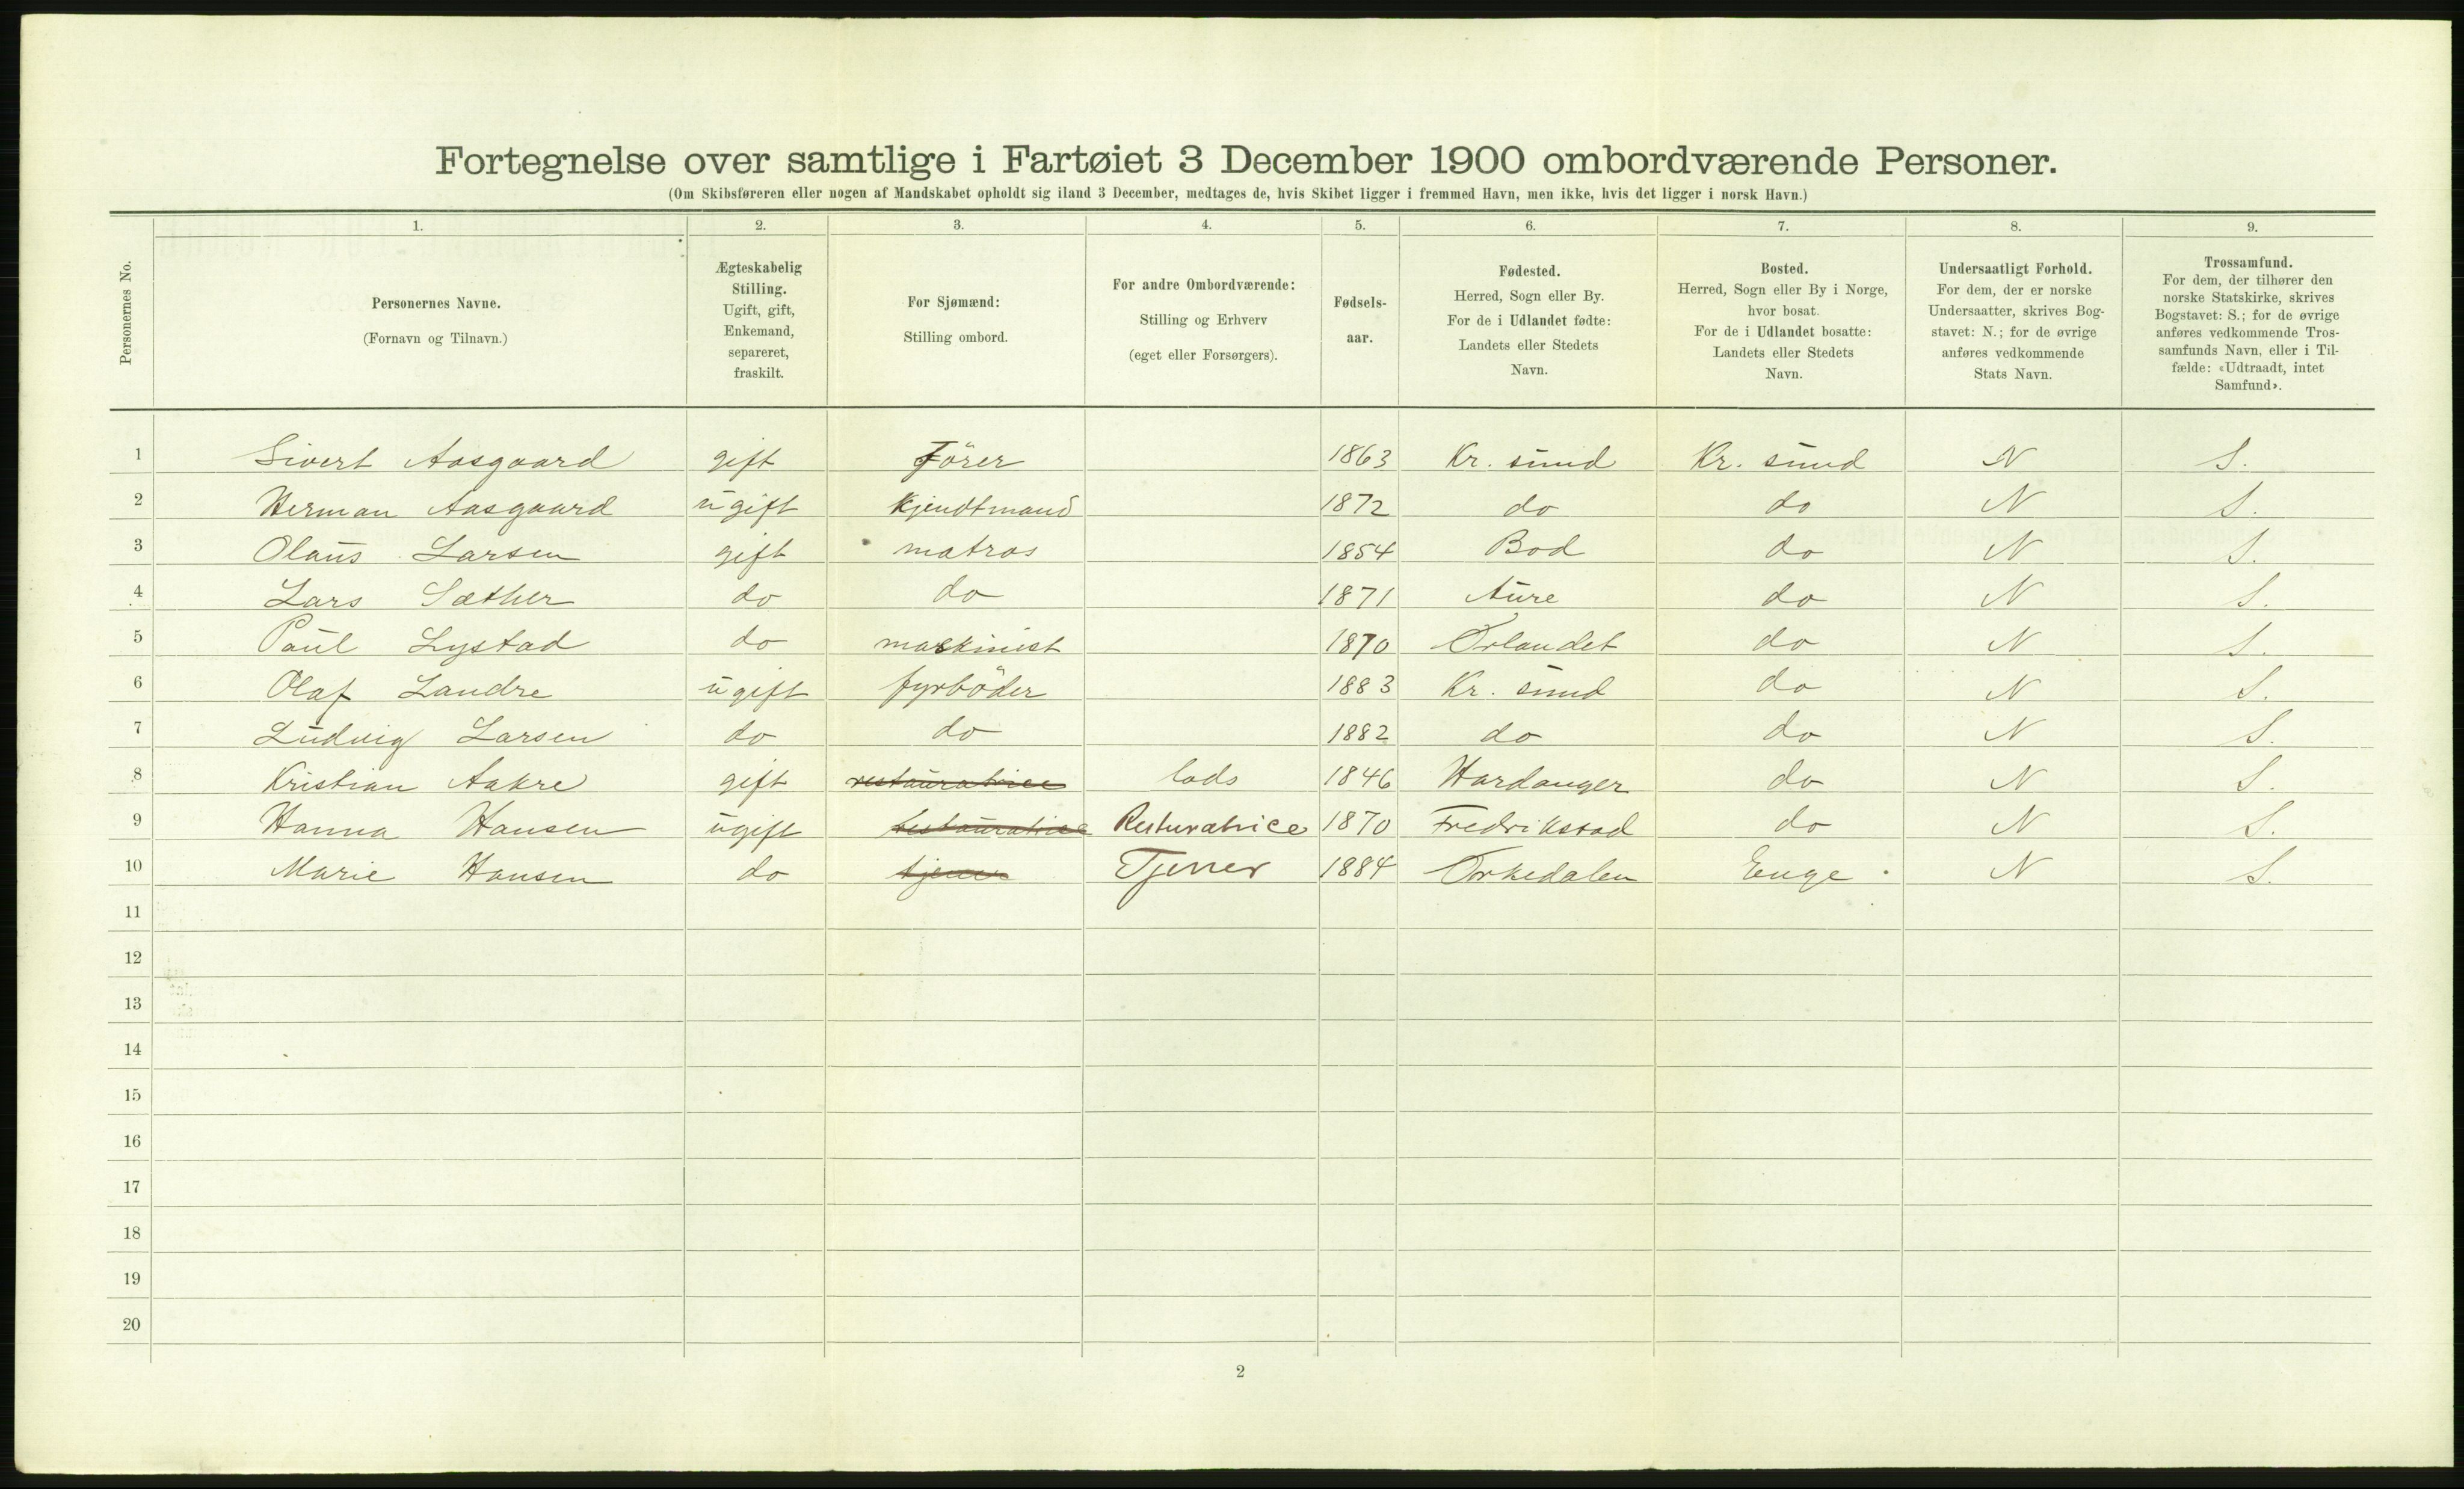 Fortegnelse over samtlige i Fartøiet 3 December 1900 ombordværende Personer.
(Om Skibsføreren eller nogen af Mandskabet opholdt sig iland 3 December, medtages de, hvis Skibet ligger i fremmed Havn, men ikke, hvis det ligger i norsk Havn.)
Personernes No.
1.
Personernes Navne.
(Fornavn og Tilnavn.)
2.
Ægteskabelig
Stilling.
Ugift, gift,
Enkemand,
separeret,
fraskilt.
3.
For Sjømænd:
Stilling ombord.
4.
For andre Ombordværende:
Stilling og Erhverv
(eget eller Forsørgers).
5.
Fødsels-
aar.
6.
Fødested.
Herred, Sogn eller By.
For de i Udlandet fødte:
Landets eller Stedets
Navn.
7.
Bosted.
Herred, Sogn eller By i Norge,
hvor bosat.
For de i Udlandet bosatte:
Landets eller Stedets
Navn.
8.
Undersaatligt Forhold.
For dem, der er norske
Undersaatter, skrives Bog-
stavet: N.; for de øvrige
anføres vedkommende
Stats Navn.
9.
Trossamfund.
For dem, der tilhører den
norske Statskirke, skrives
Bogstavet: S.; for de øvrige
anføres vedkommende Tros-
samfunds Navn, eller i Til-
fælde: «Udtraadt, intet
Samfund».
1 Sivert Aasgaard gift Förer 1863 Kr. sund Kr. sund N S.
2 Herman Aasgaard ugift Kjendtmand 1872 do do N S.
3 Olaus Larsen gift matros 1854 Bod do N S.
4 Lars Sæther do do 1871 Aure do N S.
5 Paul Lystad do maskinist 1870 Örlandet do N S.
6 Olaf Landre ugift fyrböder 1883 Kr. sund do N S.
7 Ludvig Larsen do do 1882 do do N S.
8 Kristian Aakre gift restauratrice lods 1846 Hardanger do N S.
9 Hanna Hansen ugift restauratrice Resturatrice 1870 Fredrikstad do N S.
10 Marie Hansen do tjener Tjener 1884 Orkedalen Enge N S.
11
12
13
14
15
16
17
18
19
20
2